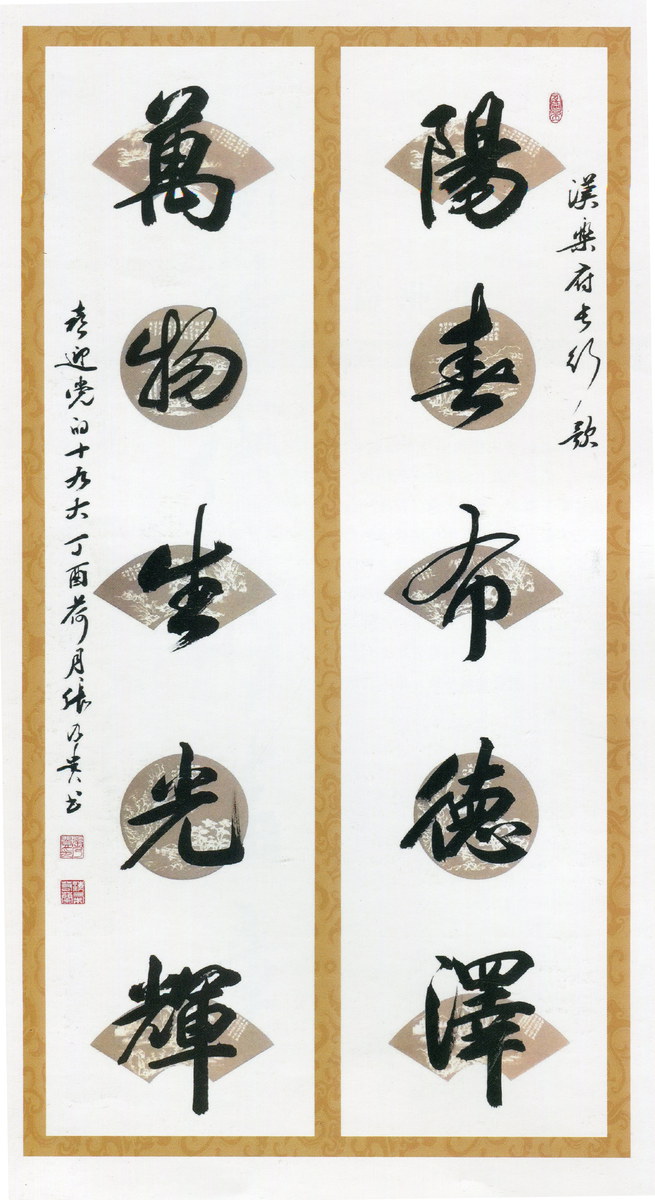 漢樂府长行歌
陽春布德澤
萬物生光輝
喜迎党的十九大丁酉荷月張乃貴书